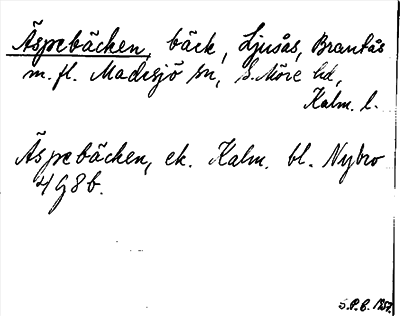 Äspebäcken, bäck, Ljusås, Brantås
m. fl. Madesjö sn, S. Möre hd,
Kalm. l.
Äspebäcken, ek. Kalm. bl. Nybro
4 G 8 b.
S.P.B. 1957.